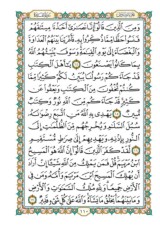 وَمِنَ ٱلَّذِينَ قَالُوٓا۟ إِنَّا نَصَـٰرَىٰٓ أَخَذْنَا مِيثَـٰقَهُمْ
فَنَسُوا۟ حَظًّا مِّمَّا ذُكِّرُوا۟ بِهِۦ فَأَغْرَيْنَا بَيْنَهُمُ ٱلْعَدَاوَةَ
وَٱلْبَغْضَآءَ إِلَىٰ يَوْمِ ٱلْقِيَـٰمَةِ ۚ وَسَوْفَ يُنَبِّئُهُمُ ٱللَّهُ
بِمَا كَانُوا۟ يَصْنَعُونَ يَـٰٓأَهْلَ ٱلْكِتَـٰبِ
قَدْ جَآءَكُمْ رَسُولُنَا يُبَيِّنُ لَكُمْ كَثِيرًا مِّمَّا
كُنتُمْ تُخْفُونَ مِنَ ٱلْكِتَـٰبِ وَيَعْفُوا۟ عَن
كَثِيرٍ ۚ قَدْ جَآءَكُم مِّنَ ٱللَّهِ نُورٌ وَكِتَـٰبٌ
مُّبِينٌ يَهْدِى بِهِ ٱللَّهُ مَنِ ٱتَّبَعَ رِضْوَٰنَهُۥ
سُبُلَ ٱلسَّلَـٰمِ وَيُخْرِجُهُم مِّنَ ٱلظُّلُمَـٰتِ إِلَى
ٱلنُّورِ بِإِذْنِهِۦ وَيَهْدِيهِمْ إِلَىٰ صِرَٰطٍ مُّسْتَقِيمٍ
لَّقَدْ كَفَرَ ٱلَّذِينَ قَالُوٓا۟ إِنَّ ٱللَّهَ هُوَ ٱلْمَسِيحُ
ٱبْنُ مَرْيَمَ ۚ قُلْ فَمَن يَمْلِكُ مِنَ ٱللَّهِ شَيْـًٔا إِنْ أَرَادَ
أَن يُهْلِكَ ٱلْمَسِيحَ ٱبْنَ مَرْيَمَ وَأُمَّهُۥ وَمَن فِى
ٱلْأَرْضِ جَمِيعًا ۗ وَلِلَّهِ مُلْكُ ٱلسَّمَـٰوَٰتِ وَٱلْأَرْضِ
وَمَا بَيْنَهُمَا ۚ يَخْلُقُ مَا يَشَآءُ ۚ وَٱللَّهُ عَلَىٰ كُلِّ شَىْءٍ قَدِيرٌ
١١٠